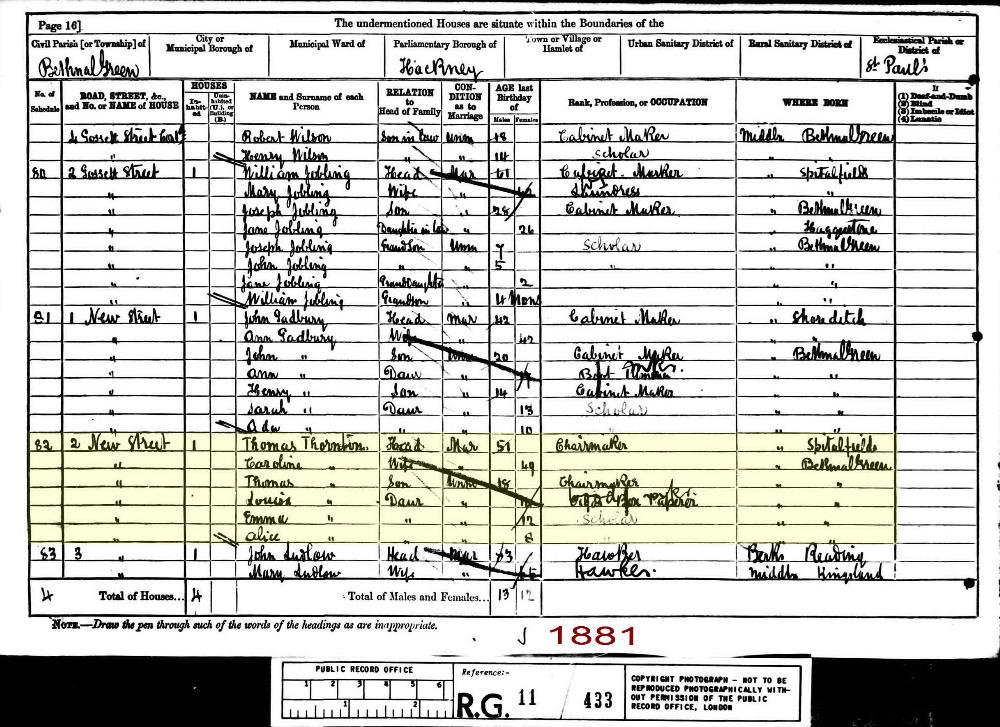 Page 16]
The undermentioned Houses are situate within the Boundaries of the
Civil Parish [or Township] of
City or Municipal Borough of
Municipal Ward of
Parliamentary Borough of
Town or Village or Hamlet of
Urban Sanitary District of
Rural Sanitary District of
Ecclesiastical Parish or District of
Bethnal Green
Hackney
St Paul's
No. of Schedule
ROAD, STREET, &c., and No. or NAME of HOUSE
HOUSES
In-habit-ed
Unin-habited (U.), or Building (B.)
NAME and Surname of each Person
RELATION to Head of Family
CON-DITION as to Marriage
AGE last Birthday of
Males
Females
Rank, Profession, or OCCUPATION
WHERE BORN
If
(1) Deaf-and-Dumb
(2) Blind
(3) Imbecile or Idiot
(4) Lunatic
4 Gossett Street Robert Wilson Son in law Unm 18 Cabinet Maker Middx Bethnal Green
" Henry Wilson " " 14 Scholar " "
80 2 Gossett Street 1 William Jobling Head Mar 61 Cabinet Maker " Spitalfields
" Mary Jobling Wife " Laundress " "
" Joseph Jobling Son " 28 Cabinet Maker " Bethnal Green
" Jane Jobling Daughter in law " 26 " Haggerstone
" Joseph Jobling GrandSon Unm 7 Scholar " Bethnal Green
" John Jobling " " 5 " " "
" Jane Jobling GrandDaughter 2 " "
" William Jobling Grandson 4 Mons " "
81 1 New Street 1 John Gadbury Head Mar 42 Cabinet Maker " Shoreditch
" Ann Gadbury Wife " 42 "
" John " Son Unm 20 Cabinet Maker " Bethnal Green
" Ann " Daur " Boot " "
" Henry " Son " 14 Cabinet Maker " "
" Sarah " Daur " 13 Scholar " "
" Ada " " 10 " "
82 2 New Street 1 Thomas Thornton Head Mar 51 Chairmaker " Spitalfields
" Caroline " Wife " 49 " Bethnal Green
" Thomas " Son Unm 18 Chairmaker " "
" Louisa " Daur " Box " "
" Emma " " " 12 Scholar " "
" Alice " 8 " "
83 3 " 1 John Ludlow Head Mar 63 Hawker Berks Reading
" Mary Ludlow Wife " Hawker Middx Kingsland
4 Total of Houses... 4 Total of Males and Females... 13 12
NOTE.—Draw the pen through such of the words of the headings as are inappropriate.
1881
PUBLIC RECORD OFFICE
1 2 3 4 5 6
1 2
Reference:-
R.G. 11 433
COPYRIGHT PHOTOGRAPH - NOT TO BE
REPRODUCED PHOTOGRAPHICALLY WITH-
OUT PERMISSION OF THE PUBLIC
RECORD OFFICE, LONDON